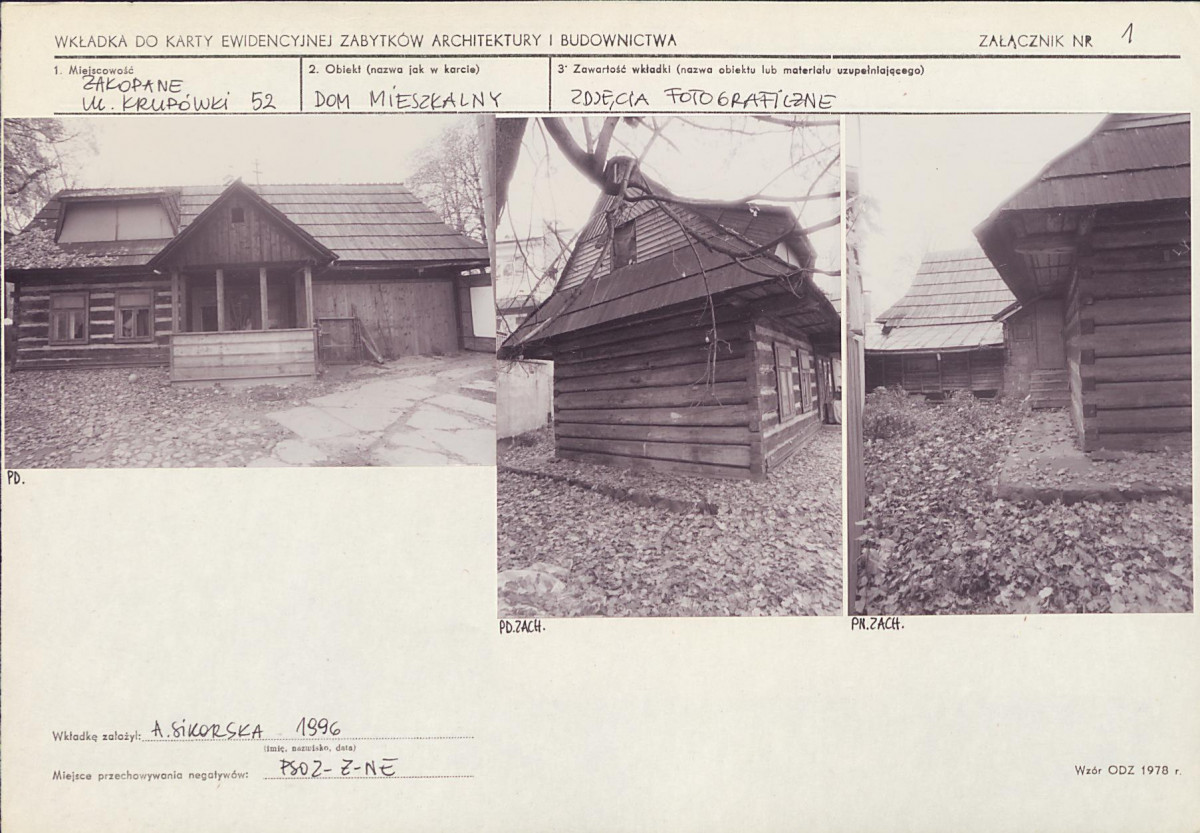 WKŁADKA DO KARTY EWIDENCYJNEJ ZABYTKÓW ARCHITEKTURY I BUDOWNICTWA
ZAŁĄCZNIK NR 1
1. Miejscowość
ZAKOPANE
ul. KRUPÓWKI 52
2. Obiekt (nazwa jak w karcie)
DOM MIESZKALNY
3. Zawartość wkładki (nazwa obiektu lub materiału uzupełniającego)
ZDJĘCIA FOTOGRAFICZNE
PD.
PD.ZACH.
PN.ZACH.
Wkładkę założył: A.SIKORSKA 1996
(imię, nazwisko, data)
Miejsce przechowywania negatywów: PSOZ-Z-NE
Wzór ODZ 1978 r.